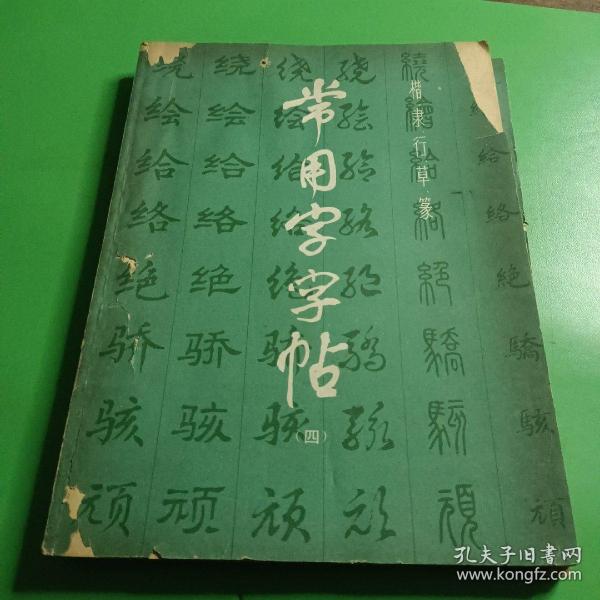 常用字字帖
(四)
楷隶行草篆
绕 绕 绕 绕 繞
绘 绘 绘 绘 繪
给 给 给 给 給 給
络 络 络 络 絡 絡
绝 绝 绝 绝 絕 絶
骄 骄 骄 骄 驕 驕
骇 骇 骇 骇 駭 駭
顽 顽 顽 顽 頑 頑
孔夫子旧书网
www.kongfz.com